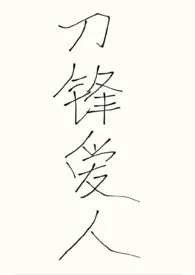 刀锋爱人